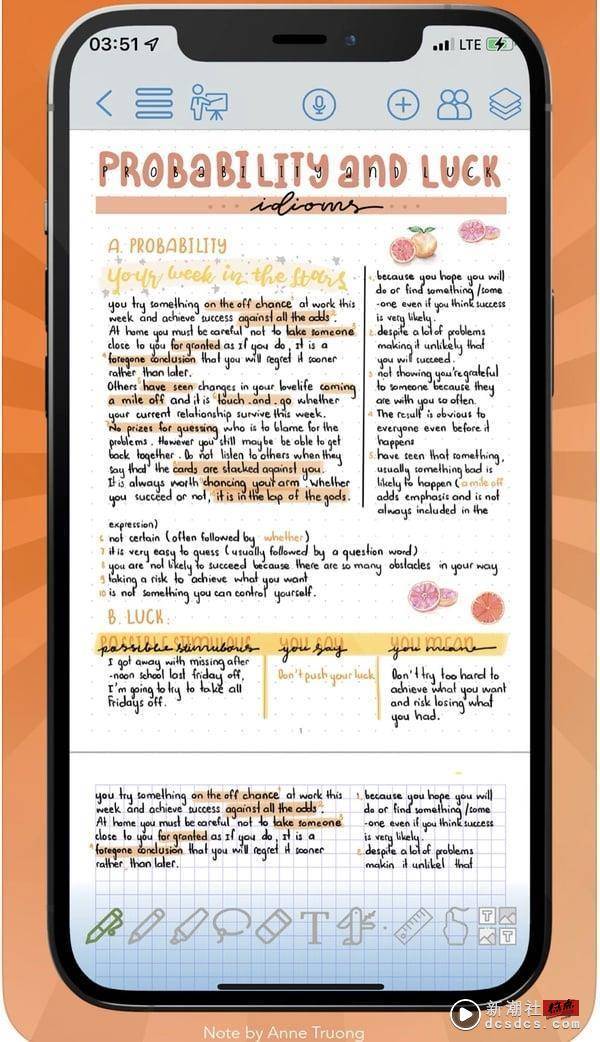 03:51
LTE
PROBABILITY and LUCK
PROBABILITY AND LUCK
idioms
A. PROBABILITY
Your week in the stars
you try something on the off chance¹ at work this
week and achieve success against all the odds².
At home you must be careful not to take someone
close to you for granted as if you do, it is a
foregone conclusion that you will regret it sooner
rather than later.
Others have seen changes in your lovelife coming
a mile off and it is touch.and.go whether
your current relationship survive this week.
No prizes for guessing who is to blame for the
problems. However you still maybe be able to get
back together. Do not listen to others when they
say that the cards are stacked against you.
It is always worth chancing your arm. Whether
you succeed or not, it is in the lap of the gods.
1. because you hope you will
do or find something /some
-one even if you think success
is very likely.
2. despite a lot of problems
making it unlikely that
you will succeed.
3. not showing you're grateful
to someone because they
are with you so often.
4. The result is obvious to
everyone even before it
happens
5. have seen that something,
usually something bad is
likely to happen (a mile off
adds emphasis and is not
always included in the
expression)
6. not certain (often followed by whether)
7. it is very easy to guess (usually followed by a question word)
8. you are not likely to succeed because there are so many obstacles in your way
9. taking a risk to achieve what you want
10. is not something you can control yourself.
B. LUCK:
POSSIBLE STIMULOUS YOU SAY YOU MEAN
possible stimulous you say you mean
I got away with missing after
-noon school last friday off,
I'm going to try to take all
Fridays off.
Don't push your luck
Don't try too hard to
achieve what you want
and risk losing what
you had.
1
you try something on the off chance¹ at work this
week and achieve success against all the odds².
At home you must be careful not to take someone
close to you for granted as if you do, it is a
foregone conclusion that you will regret it sooner
rather than later.
1. because you hope you will
do or find something /some
-one even if you think success
is very likely.
2. despite a lot of problems
makin it unlikel that
T
T
T
新潮社
dcsdcs.com
Note by Anne Truong